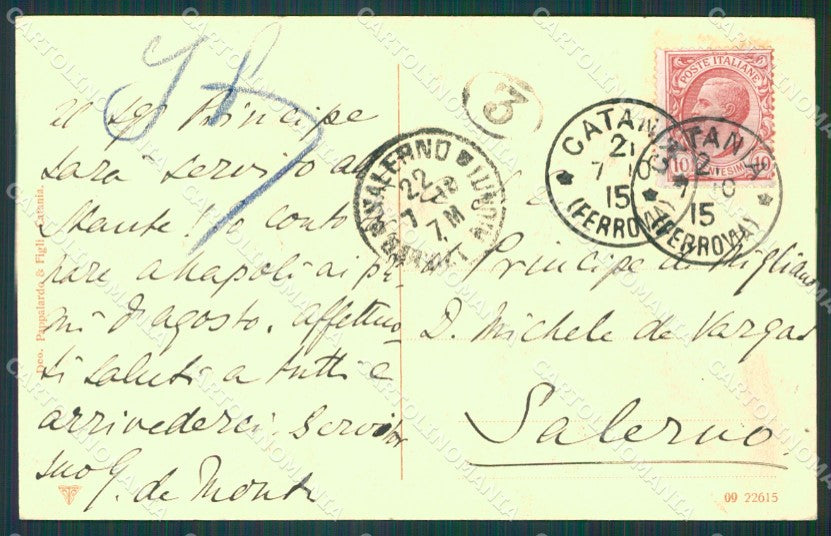 Il sig. Principe
sarà servito al
Mante! Lo cont
pare a Napoli ai pi
mi d'agosto. Affettuo
si saluti a tutti e
arrivederci, servitor
suo G. de Monte
Deo. Pappalardo & Figli, Catania.
SALERNO
22
7
7 M
3
CATANIA
21
7 10
15
(FERROVIA)
CATANIA
21
7 10
15
(FERROVIA)
POSTE ITALIANE
10 CENTESIMI 10
Principe di Migliano
D. Michele de Vargas
Salerno
09 22615
CARTOLINOMANIA